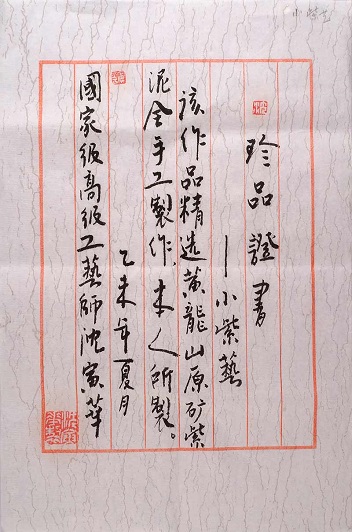 珍品證書
—小紫藝
該作品精选黄龍山原矿紫
泥全手工製作,本人所製。
乙未年夏月
國家级高级工藝師沈寅華